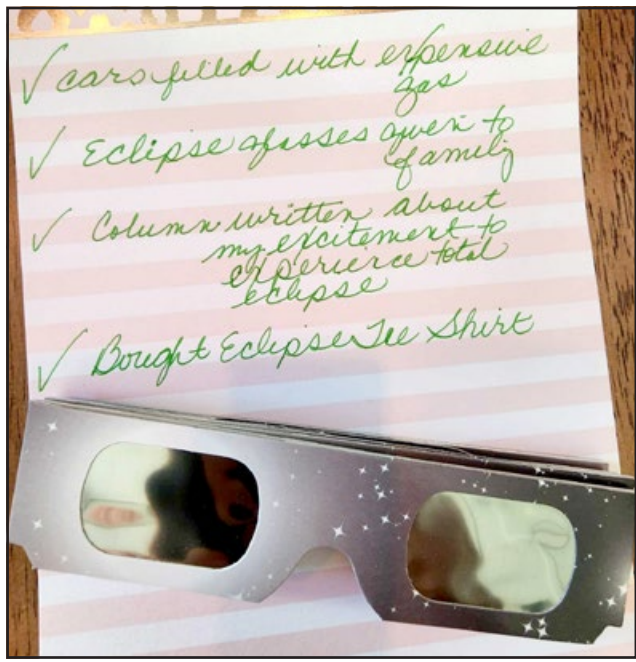 ✓ cars filled with expensive
gas
✓ Eclipse glasses given to
family
✓ Column written about
my excitement to
experience total
eclipse
✓ Bought Eclipse Tee Shirt